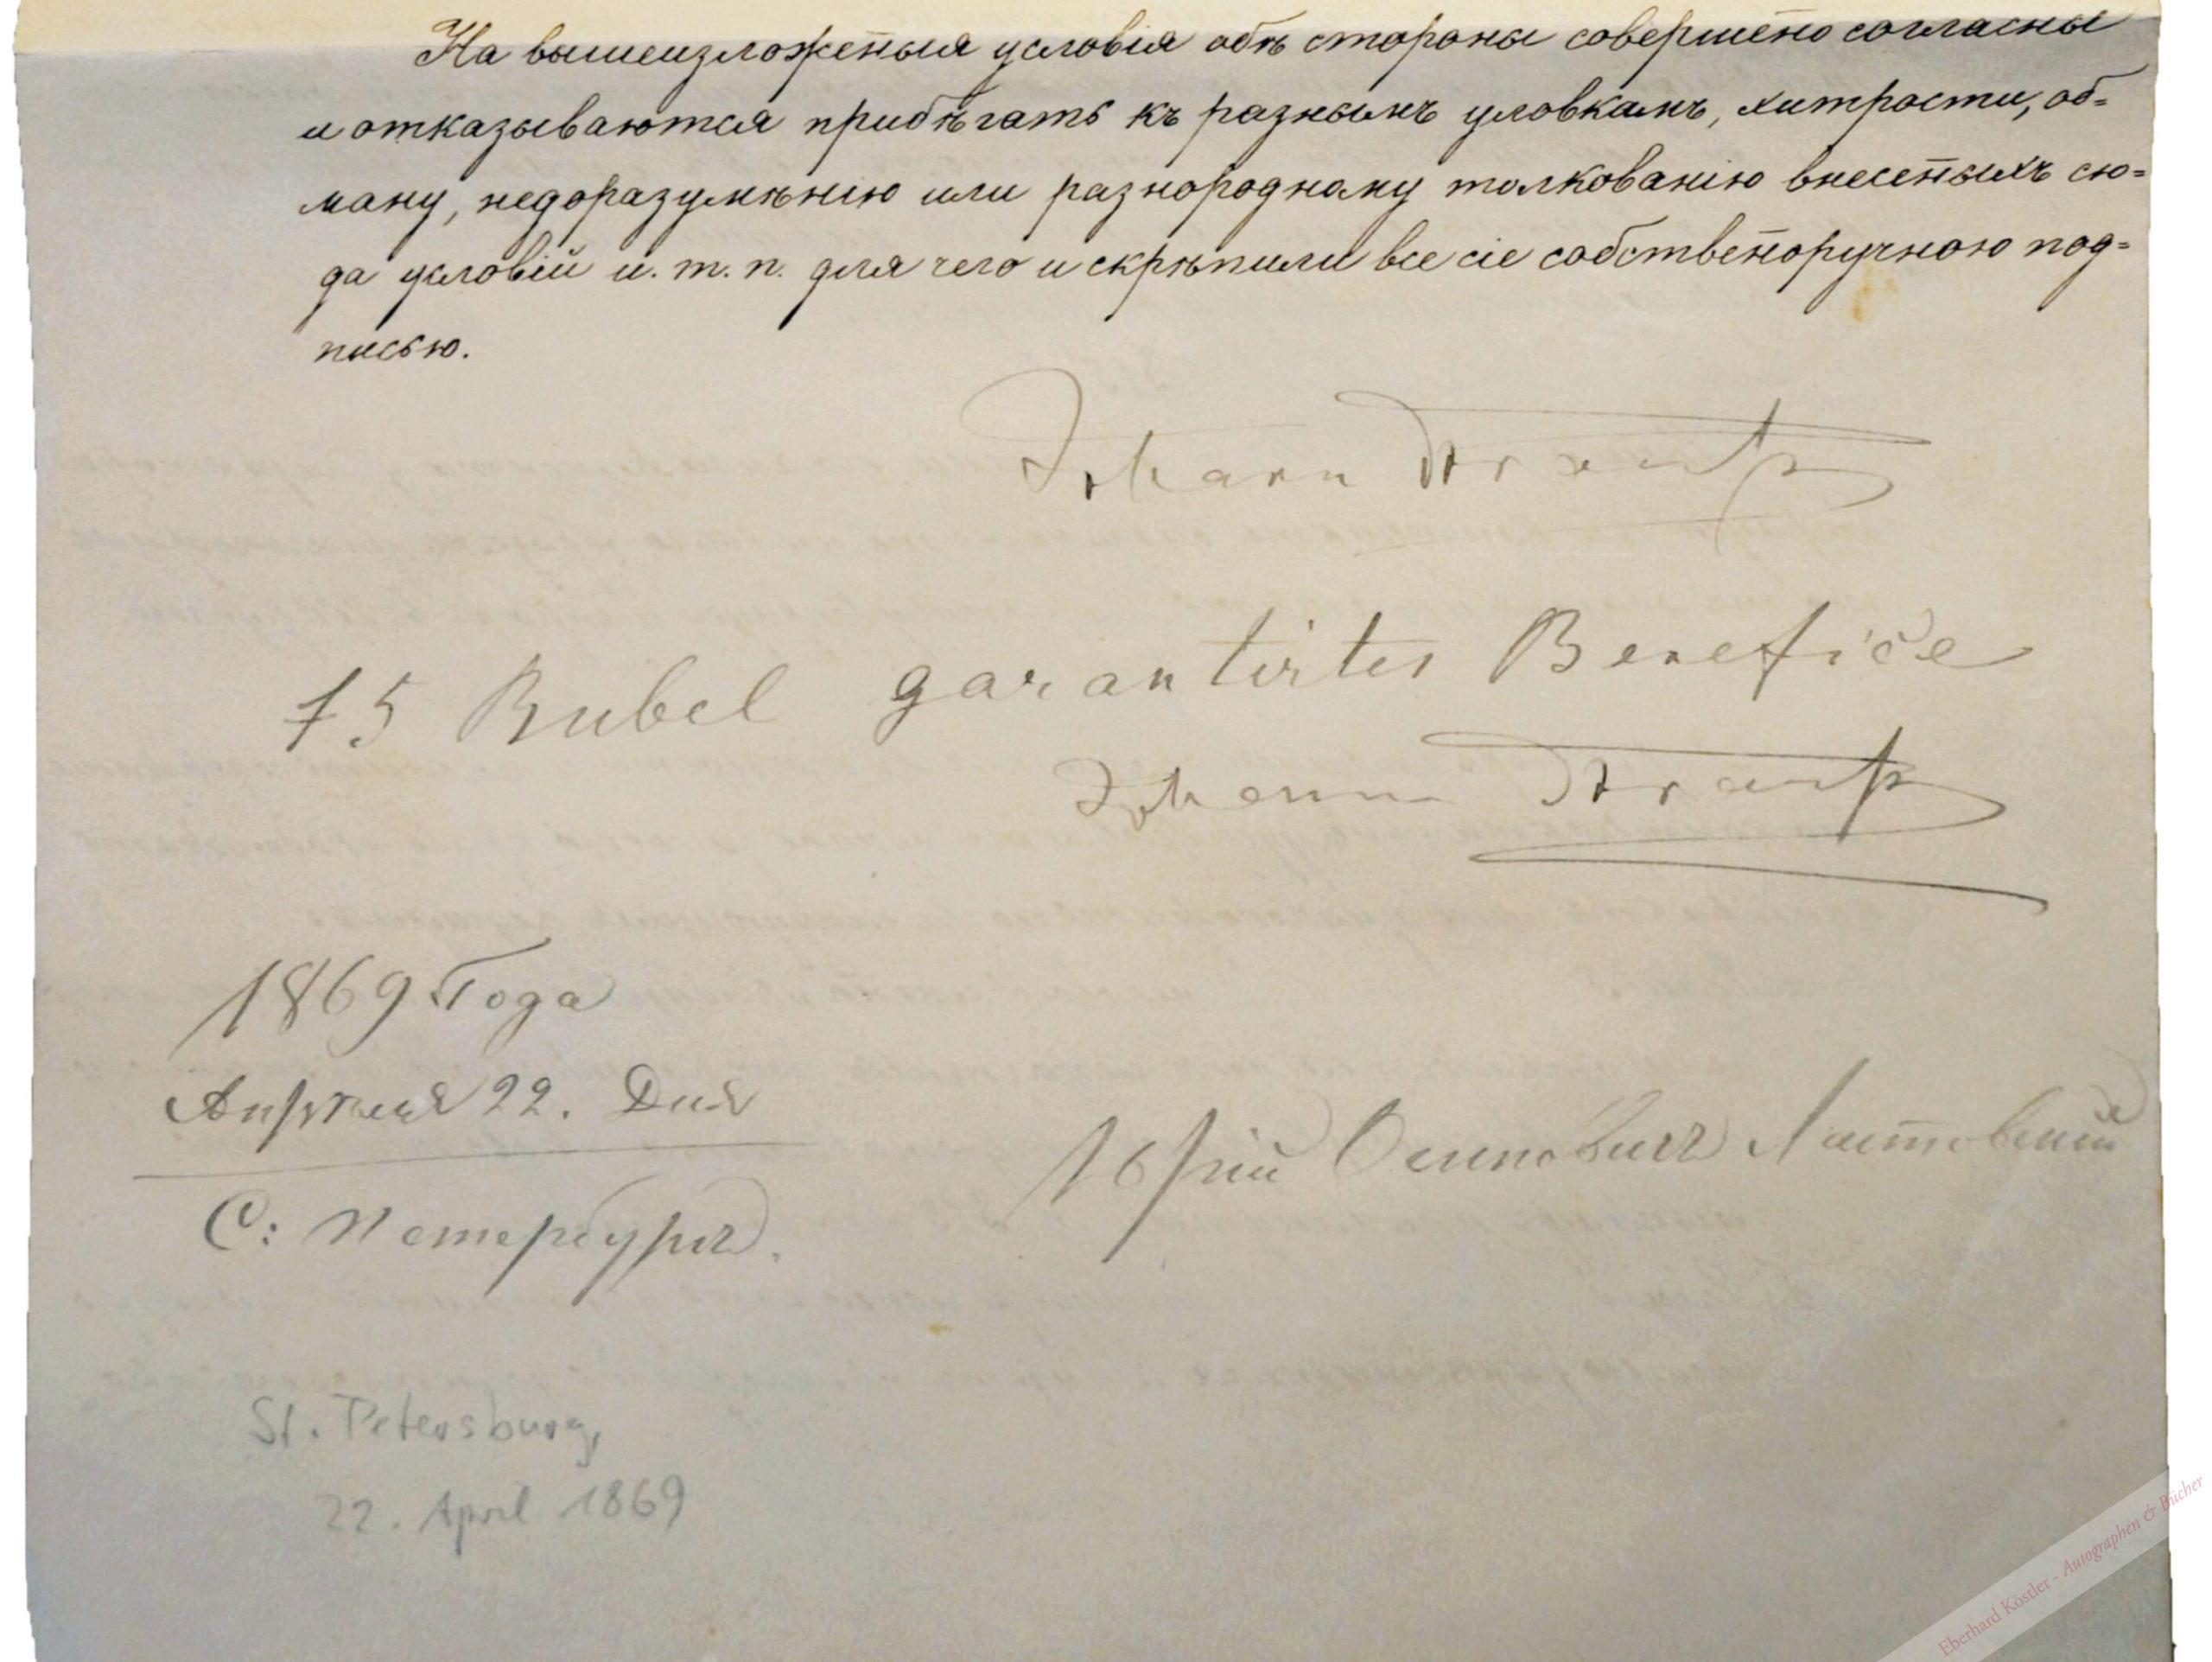 На вышеизложеныя условія обѣ стороны совершено согласны
и отказываются прибѣгать къ разнымъ уловкамъ, хитрости, об=
ману, недоразумѣнію или разнородному толкованію внесеныхъ сю=
да условій и. т. п. для чего и скрѣпили все сіе собственоручною под=
писью.
Johann Strauß
75 Rubel garantirtes Benefice
Johann Strauß
1869 Года
Апрѣля 22. Дня
С: Петербургъ.
Юрій Осиповичъ
St. Petersburg,
22. April 1869
Eberhard Köstler - Autographen & Bücher